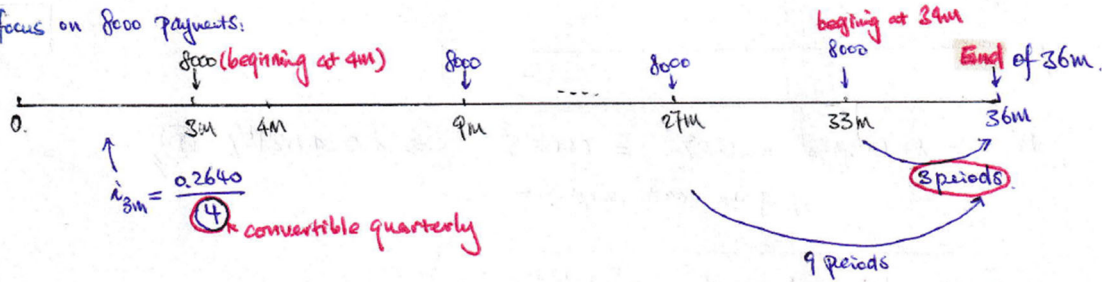 focus on 8000 payments:
begining at 34m
8000 (beginning at 4m) 8000 8000 8000 End of 36m.
.....
0. 3m 4m 9m 27m 33m 36m
i3m = 0.2640 / 4
convertible quarterly
3 peiods.
9 peiods